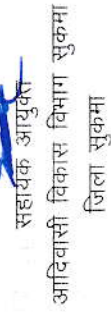 सहायक आयुक्त
आदिवासी विकास विभाग सुकमा
जिला सुकमा